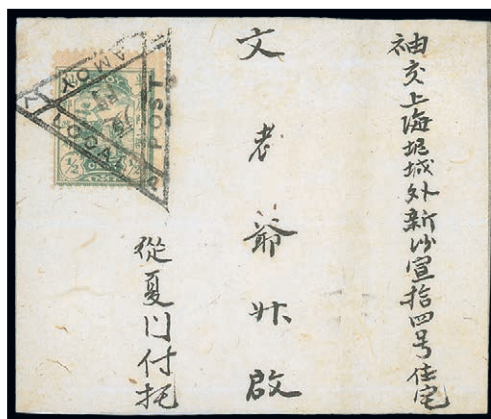 袖交上海坭城外新沙宣拾四号住宅
文老爺升啟
從夏门付托
AMOY
LOCAL POST
1/2 1/2